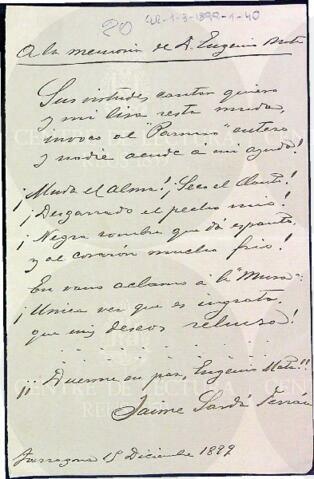 20
UR-1-3-1899-1-40
A la memoria de D. Eugenio Mata
Sus virtudes cantar quiero
y mi lira resta muda,
invoco al "Parnaso" entero
y nadie acude á mi ayuda!
¡Muda el alma! ¡Seco el llanto!
¡Desgarrado el pecho mio!
¡Negra sombra que dá espanto
y al corazón mucho frio!
En vano aclamo á la "Musa":
¡Unica vez que es ingrata,
que mis deseos rehusa!
¡¡ Duerme en paz, Eugenio Mata!!
Jaime Sardá Ferrán
Tarragona 15 Diciembre 1899
CENTRE DE LECTURA
REUS